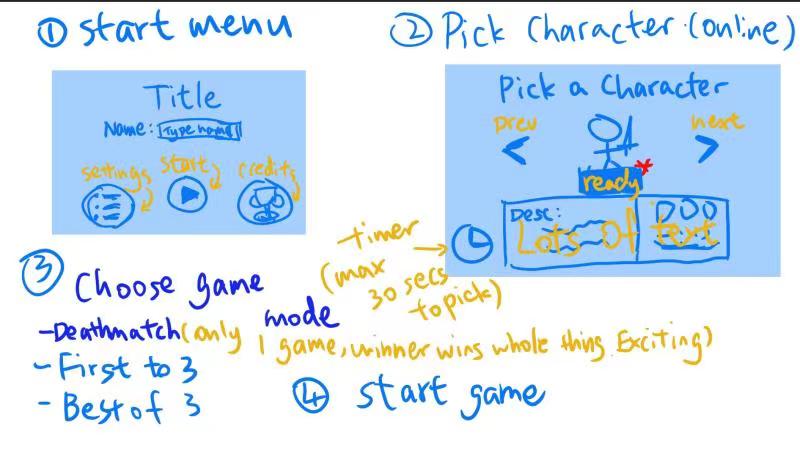 ① start menu
Title
Name: Type name
settings
start
credits
② Pick Character (online)
Pick a Character
prev
next
ready *
Desc:
Lots of text
timer
(max
30 secs
to pick)
③ Choose game
mode
-Deathmatch (only 1 game, winner wins whole thing. Exciting)
- First to 3
- Best of 3
④ start game